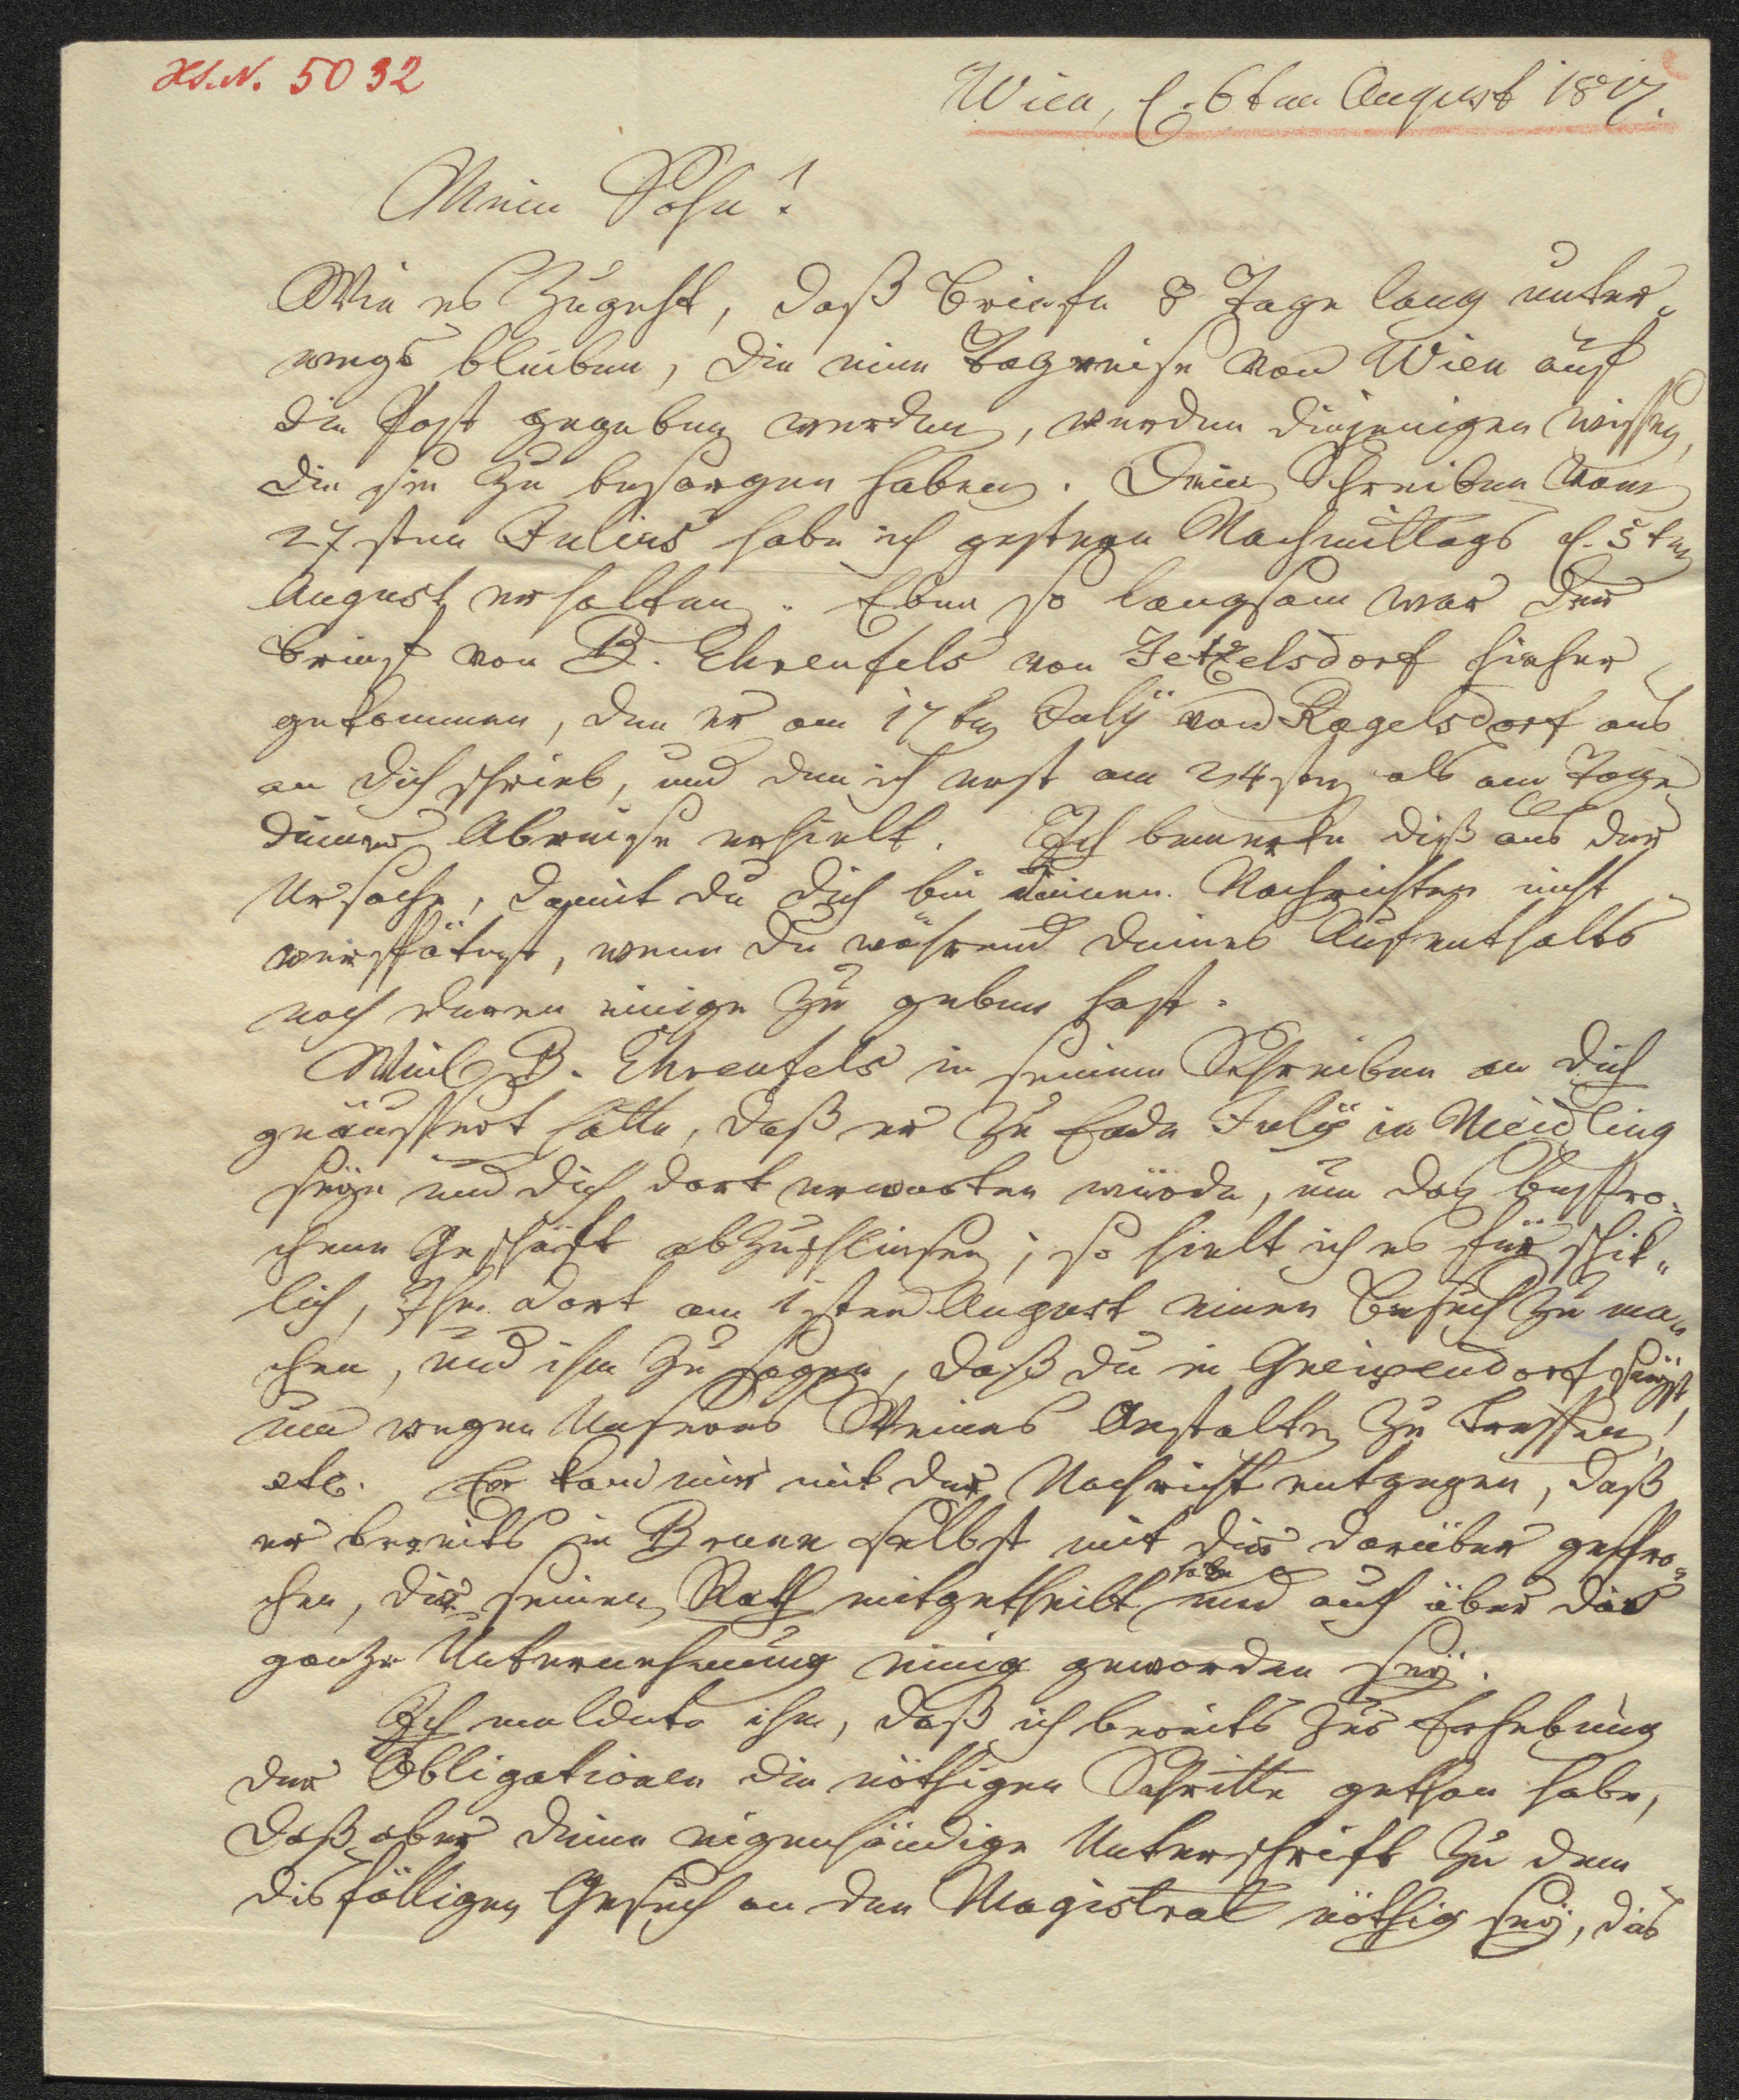 Hs. N. 5032
Wien, d. 6ten August 1817.
Mein Sohn!
Wie es zugeht, daß Briefe 8 Tage lang unter„
wegs bleiben, die eine Tagreise von Wien auf
die Post gegeben werden, werden diejenigen wissen,
die sie zu besorgen haben. Dein Schreiben vom
27sten Julius habe ich gestern Nachmittags d. 5ten
August erhalten. Eben so langsam war der
Brief von B. Ehrenfels von Jetzelsdorf hieher
gekommen, den er am 17ten July von Ragelsdorf aus
an dich schrieb, und den ich erst am 24sten als am Tage
deiner Abreise erhielt. Ich bemerke diß aus der
Ursache, damit du dich bei deinen Nachrichten nicht
verspätest, wenn du während deines Aufenthalts
noch deren einige zu geben hast.
Weil B. Ehrenfels in seinem Schreiben an dich
geäussert hatte, daß er zu Ende July in Meidling
seyn und dich dort erwarten würde, um das bespro„
chene Geschäft abzuschliesen; so hielt ich es für schik„
lich, Ihm dort am 1sten August einen Besuch zu ma„
chen, und ihm zu sagen, daß du in Greipendorf seyst,
um wegen Unseres Weines Anstalten zu treffen,
etc. Er kam mir mit der Nachricht entgegen, daß
er bereits in Brunn selbst mit dir darüber gespro„
chen, dir seinen Rath mitgetheilt habe und auch über das
ganze Unternehmung einig geworden sey.
Ich meldete ihm, daß ich bereits zur Erhebung
der Obligationen die nöthigen Schritte gethan habe,
daß aber deine eigenhändige Unterschrift zu dem
disfälligen Gesuch an den Magistrat nöthig sey, das